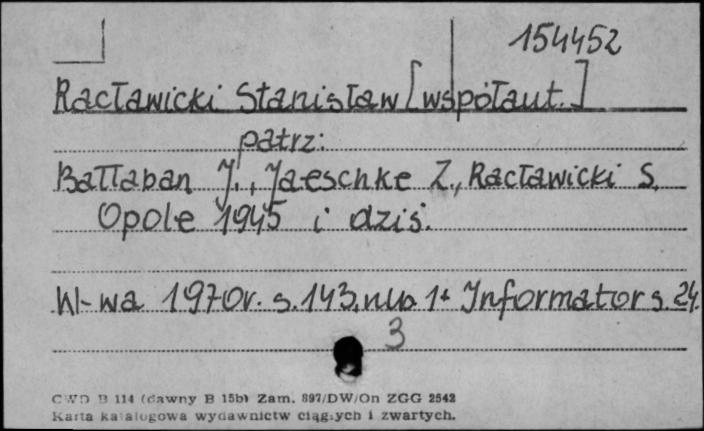 154452
Racławicki Stanisław [współaut.]
patrz:
Bałłaban J., Jaeschke Z., Racławicki S.
Opole 1945 i dziś.
W-wa 1970r. s. 143, nlb. 1 + Informator s. 24.
3
CWD B 114 (dawny B 15b) Zam. 897/DW/On ZGG 2542
Karta katalogowa wydawnictw ciągłych i zwartych.